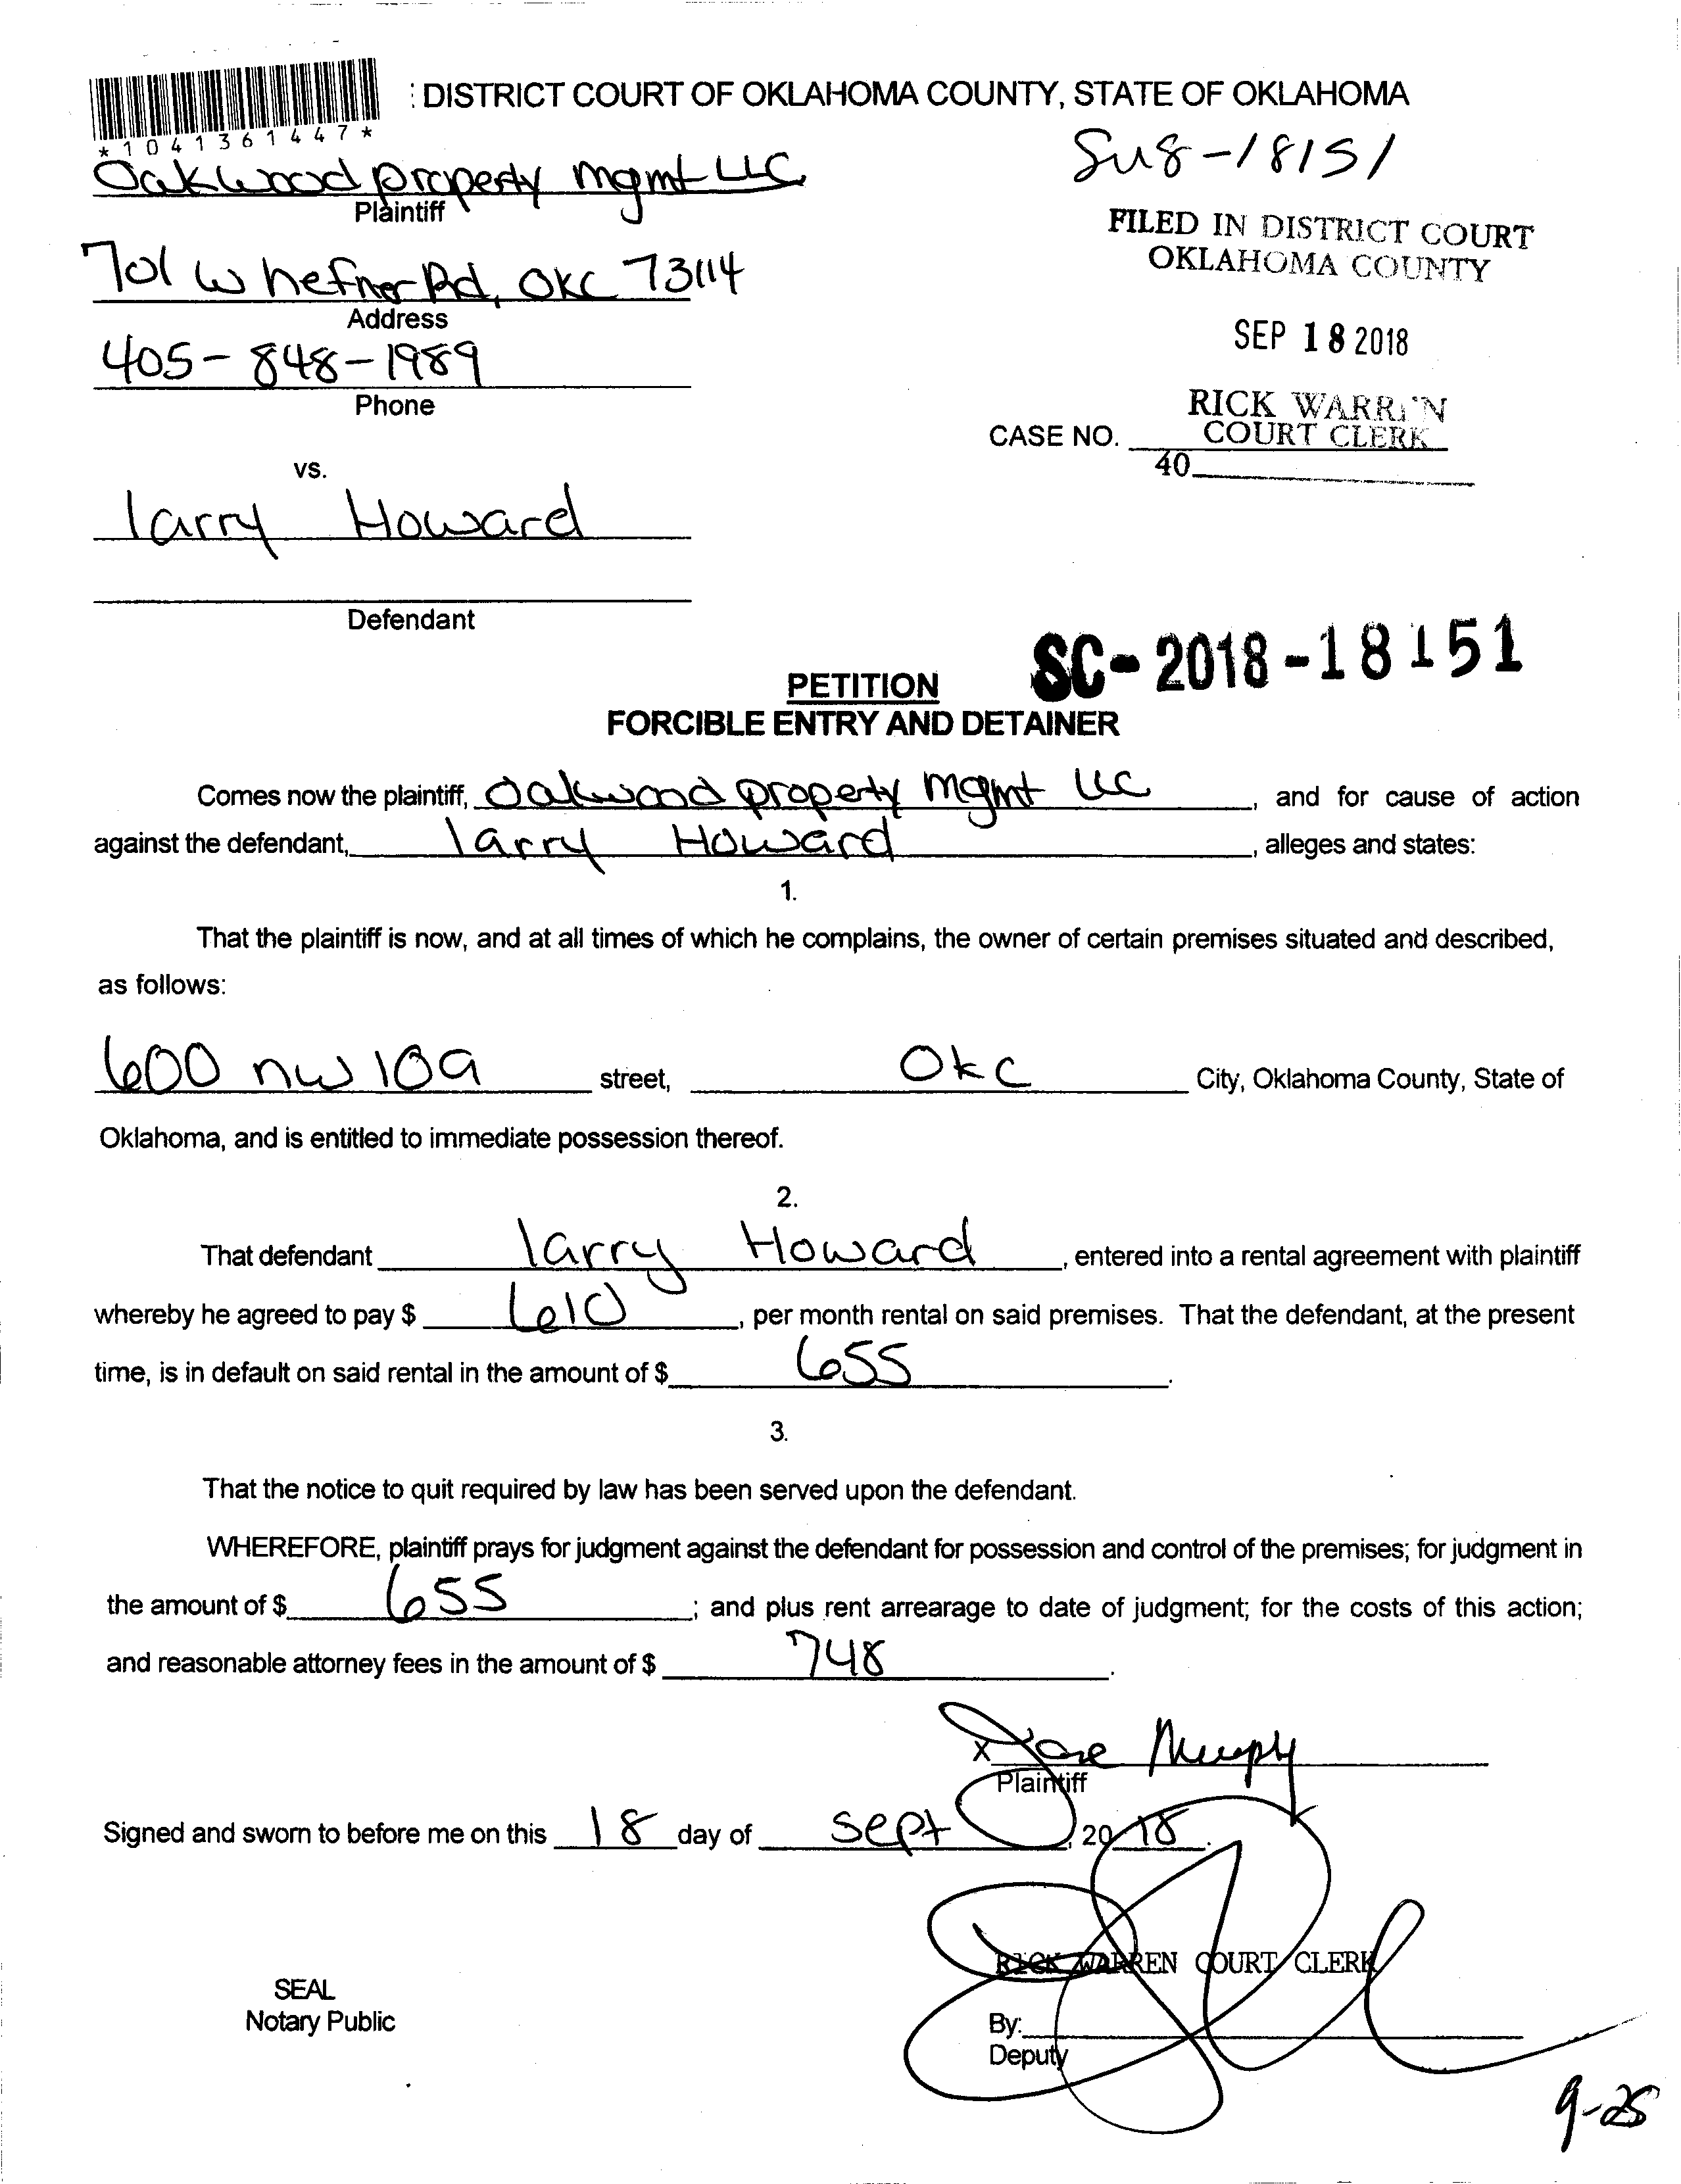 : DISTRICT COURT OF OKLAHOMA COUNTY, STATE OF OKLAHOMA
*1041361447*
Oakwood property mgmt LLC
Plaintiff
701 W hefner Rd, OKC 73114
Address
405-848-1989
Phone
vs.
larry Howard
Defendant
18151
FILED IN DISTRICT COURT
OKLAHOMA COUNTY
SEP 18 2018
RICK WARREN
COURT CLERK
CASE NO.
40
SC-2018-18151
PETITION
FORCIBLE ENTRY AND DETAINER
Comes now the plaintiff, Oakwood property mgmt LLC, and for cause of action
against the defendant, larry Howard, alleges and states:
1.
That the plaintiff is now, and at all times of which he complains, the owner of certain premises situated and described,
as follows:
600 nw 109 street, OKC City, Oklahoma County, State of
Oklahoma, and is entitled to immediate possession thereof.
2.
That defendant larry Howard, entered into a rental agreement with plaintiff
whereby he agreed to pay $ 610, per month rental on said premises. That the defendant, at the present
time, is in default on said rental in the amount of $ 655.
3.
That the notice to quit required by law has been served upon the defendant.
WHEREFORE, plaintiff prays for judgment against the defendant for possession and control of the premises; for judgment in
the amount of $ 655; and plus rent arrearage to date of judgment; for the costs of this action;
and reasonable attorney fees in the amount of $ 748.
x Murphy
Plaintiff
Signed and sworn to before me on this 18 day of sept, 2018.
RICK WARREN COURT CLERK
SEAL
Notary Public
By:
Deputy
9-25